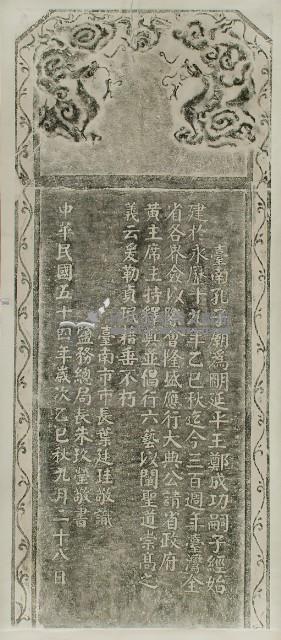 臺南孔子廟為明延平王鄭成功嗣子經始
建於永曆十九年乙巳秋迄今三百週年臺灣全
省各界僉以際茲隆盛應行大典公請省政府
黃主席主持釋奠並倡行六藝以闡聖道崇高之
義云爰勒貞珉藉垂不朽
臺南市市長葉廷珪敬識
鹽務總局長朱玖瑩敬書
中華民國五十四年歲次乙巳秋九月二十八日